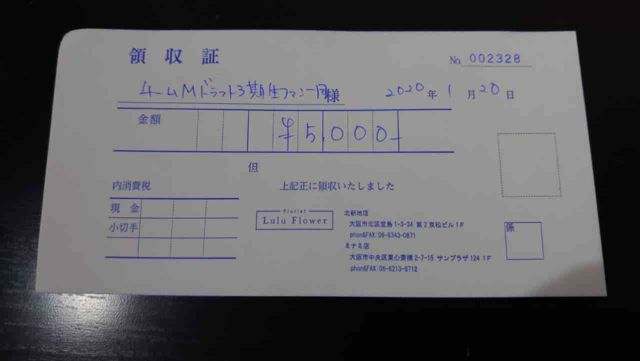 領収証
No. 002328
チームMドラフト3期生ファン一同様
2020年1月20日
金額
¥5,000-
但
内消費税
上記正に領収いたしました
現金
小切手
Florist
Lulu Flower
北新地店
大阪市北区堂島1-3-34 第2東松ビル1F
phon&FAX:06-6343-0871
ミナミ店
大阪市中央区東心斎橋2-7-15 サンプラザ124 1F
phon&FAX:06-6213-8712
係